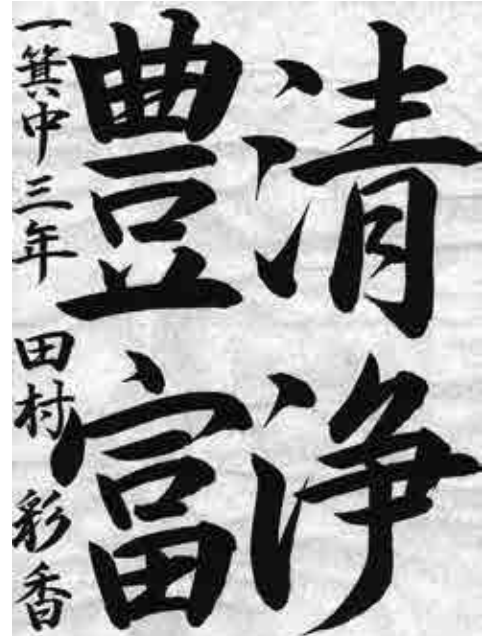 清浄
豊富
一箕中三年 田村 彩香